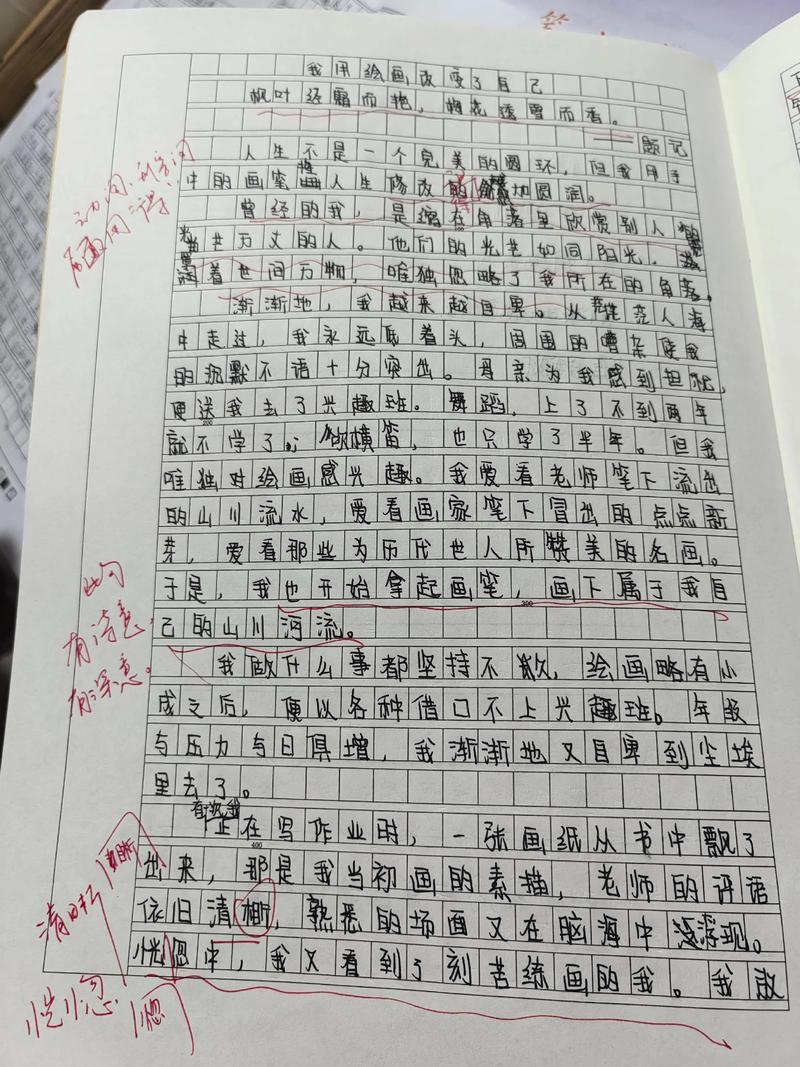 我用绘画改变了自己
枫叶经霜而艳，梅花透雪而香。
——题记
人生不是一个完美的圆环，但我用手
中的画笔将人生修改得更加圆润。
曾经的我，是缩在角落里欣赏别人的
光芒万丈的人。他们的光芒如同阳光，
着世间万物，唯独忽略了我所在的角落。
渐渐地，我越来越自卑。从茫茫人海
中走过，我永远低着头，周围的嘈杂使我
的沉默不语十分突出。母亲为我感到担忧，
便送我去了兴趣班。舞蹈，上了不到两年
就不学了；吹横笛，也只学了半年。但我
唯独对绘画感兴趣。我爱看老师笔下流出
的山川流水，爱看画家笔下冒出的点点新
芽，爱看那些为历代世人所赞美的名画。
于是，我也开始拿起画笔，画下属于我自
己的山川河流。
我做什么事都坚持不久，绘画略有小
成之后，便以各种借口不上兴趣班。年级
与压力与日俱增，我渐渐地又自卑到尘埃
里去了。
有次我正在写作业时，一张画纸从书中飘了
出来，那是我当初画的素描，老师的评语
依旧清晰，熟悉的场面又在脑海中浮现。
恍惚中，我又看到了刻苦练画的我。我放
此句
有诗意，
有深意。
清晰
恍惚
200
300
400